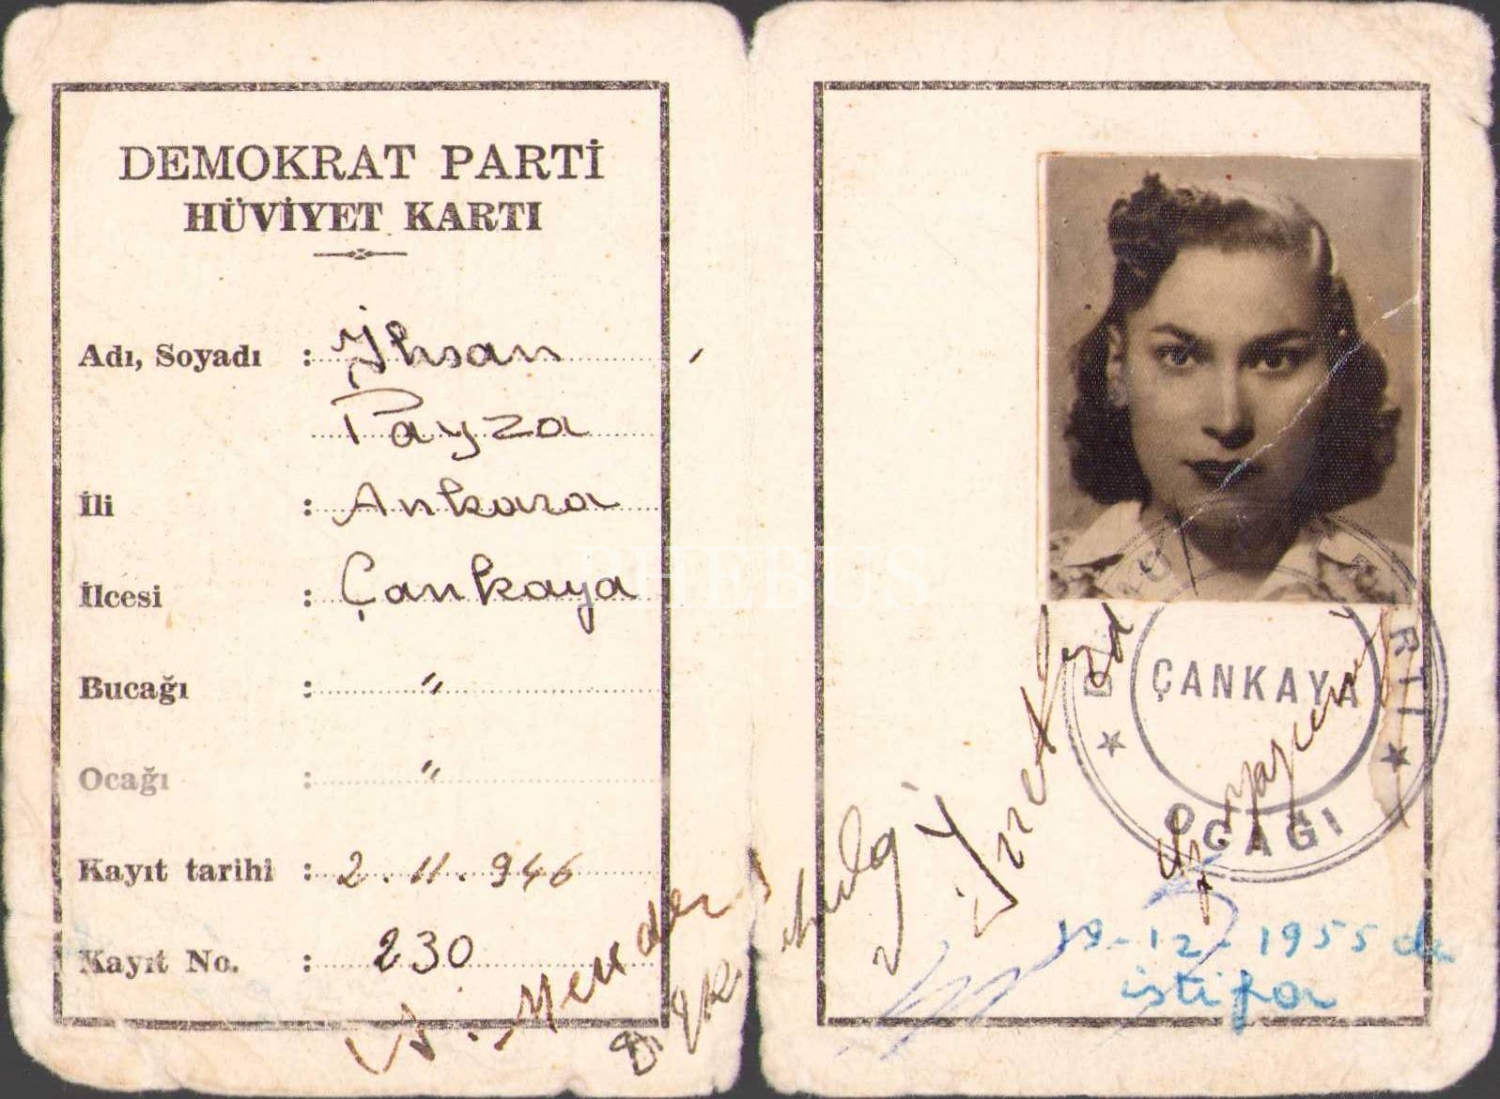 DEMOKRAT PARTİ
HÜVİYET KARTI
Adı, Soyadı : İhsan
Payza
İli : Ankara
İlcesi : Çankaya
Bucağı : "
Ocağı : "
Kayıt tarihi : 2.11.946
Kayıt No. : 230
PHEBUS
RTİ
ÇANKAYA
OCAĞI
19-12-1955 de
istifa